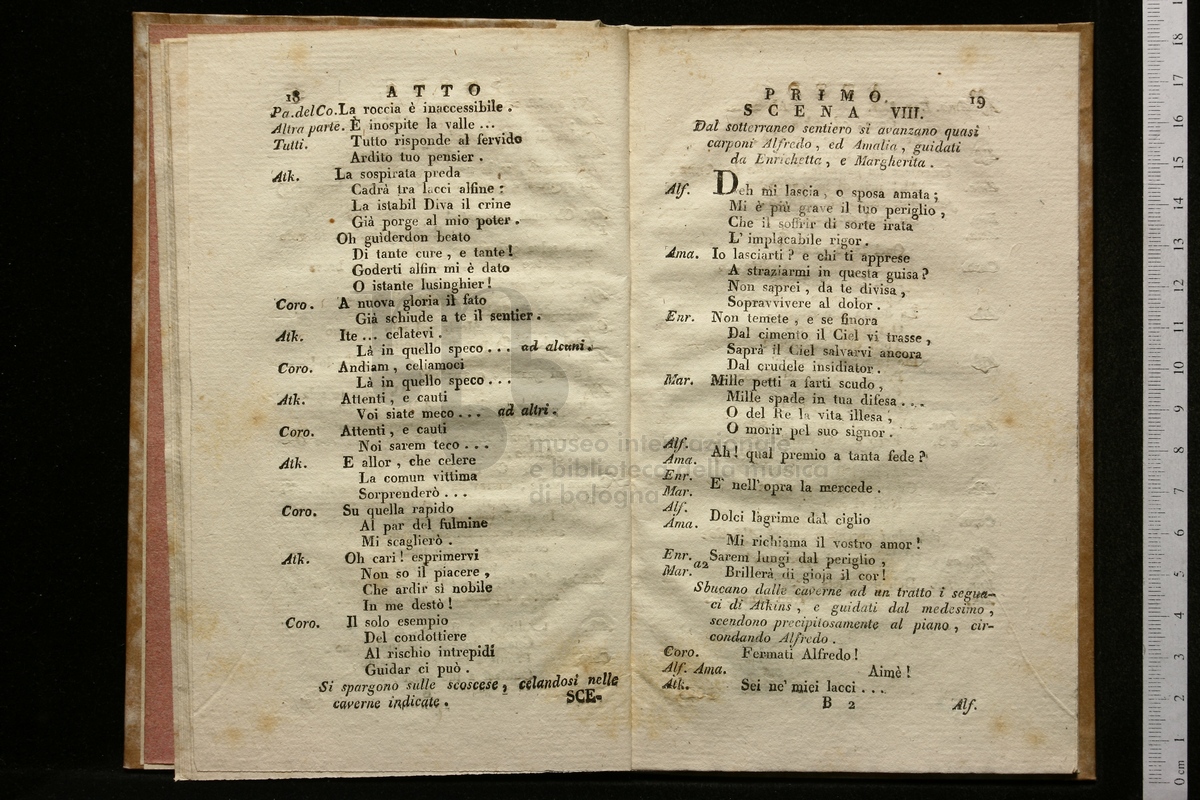 18 ATTO
Pa.delCo. La roccia è inaccessibile .
Altra parte. È inospite la valle ...
Tutti. Tutto risponde al fervido
Ardito tuo pensier .
Atk. La sospirata preda
Cadrà tra lacci alfine :
La istabil Diva il crine
Già porge al mio poter .
Oh guiderdon beato
Di tante cure , e tante !
Goderti alfin mi è dato
O istante lusinghier !
Coro. A nuova gloria il fato
Già schiude a te il sentier .
Atk. Ite ... celatevi .
Là in quello speco ... ad alcuni.
Coro. Andiam , celiamoci
Là in quello speco ...
Atk. Attenti , e cauti
Voi siate meco ... ad altri .
Coro. Attenti , e cauti
Noi sarem teco ...
Atk. E allor , che celere
La comun vittima
Sorprenderò ...
Coro. Su quella rapido
Al par del fulmine
Mi scaglierò .
Atk. Oh cari ! esprimervi
Non so il piacere ,
Che ardir sì nobile
In me destò !
Coro. Il solo esempio
Del condottiere
Al rischio intrepidi
Guidar ci può .
Si spargono sulle scoscese , celandosi nelle
caverne indicate .
SCE-
PRIMO. 19
SCENA VIII.
Dal sotterraneo sentiero si avanzano quasi
carponi Alfredo , ed Amalia , guidati
da Enrichetta , e Margherita .
Alf. Deh mi lascia , o sposa amata ;
Mi è più grave il tuo periglio ,
Che il soffrir di sorte irata
L' implacabile rigor .
Ama. Io lasciarti ? e chi ti apprese
A straziarmi in questa guisa ?
Non saprei , da te divisa ,
Sopravvivere al dolor .
Enr. Non temete , e se finora
Dal cimento il Ciel vi trasse ,
Saprà il Ciel salvarvi ancora
Dal crudele insidiator .
Mar. Mille petti a farti scudo ,
Mille spade in tua difesa ...
O del Re la vita illesa ,
O morir pel suo signor .
Alf.
Ama. Ah ! qual premio a tanta fede ?
Enr.
Mar. E' nell' opra la mercede .
Alf.
Ama. Dolci lagrime dal ciglio
Mi richiama il vostro amor !
Enr. a2 Sarem lungi dal periglio ,
Mar. Brillerà di gioja il cor !
Sbucano dalle caverne ad un tratto i segua-
ci di Atkins , e guidati dal medesimo ,
scendono precipitosamente al piano , cir-
condando Alfredo .
Coro. Fermati Alfredo !
Alf. Ama. Aimè !
Atk. Sei ne' miei lacci ...
B 2 Alf.
museo internazionale
e biblioteca della musica
di bologna
0 cm 1 2 3 4 5 6 7 8 9 10 11 12 13 14 15 16 17 18